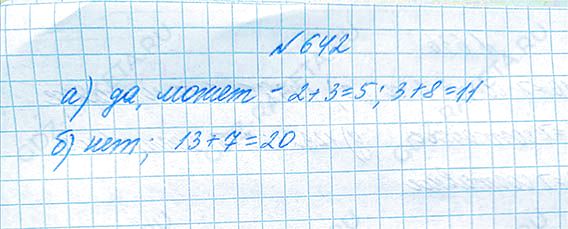 №642
а) да, может - 2+3=5; 3+8=11
б) нет; 13+7=20